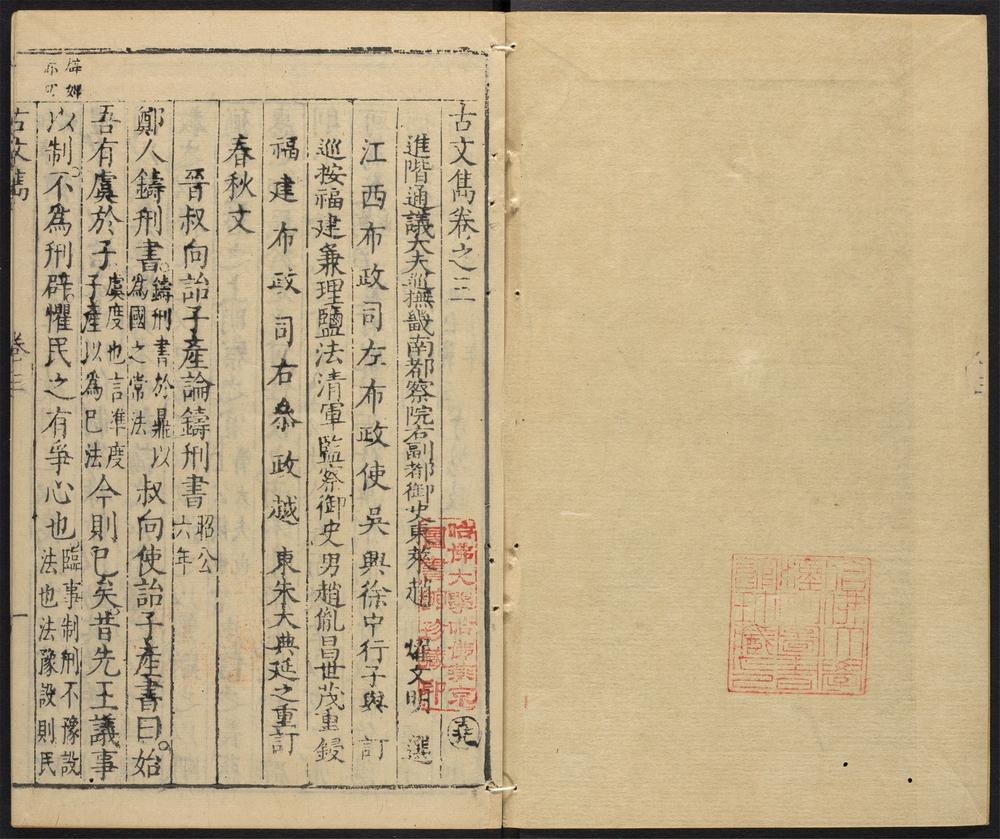 古文雋卷之三
進階通議大夫巡撫畿南都察院右副都御史東萊趙燿文明選
江西布政司左布政使吳興徐中行子與訂
巡按福建兼理鹽法清軍監察御史男趙胤昌世茂重鋟
福建布政司右叅政越東朱大典延之重訂
春秋文
晉叔向詒子產論鑄刑書昭公六年
鄭人鑄刑書。鑄刑書於鼎以為國之常法叔向使詒子產書曰。始
吾有虞於子虞度也言準度子產以為己法今則已矣。昔先王議事
以制。不為刑辟。懼民之有爭心也臨事制刑不豫設法也法豫設則民
古文雋
卷三
一
哈佛大學哈佛燕京圖書館珍藏印